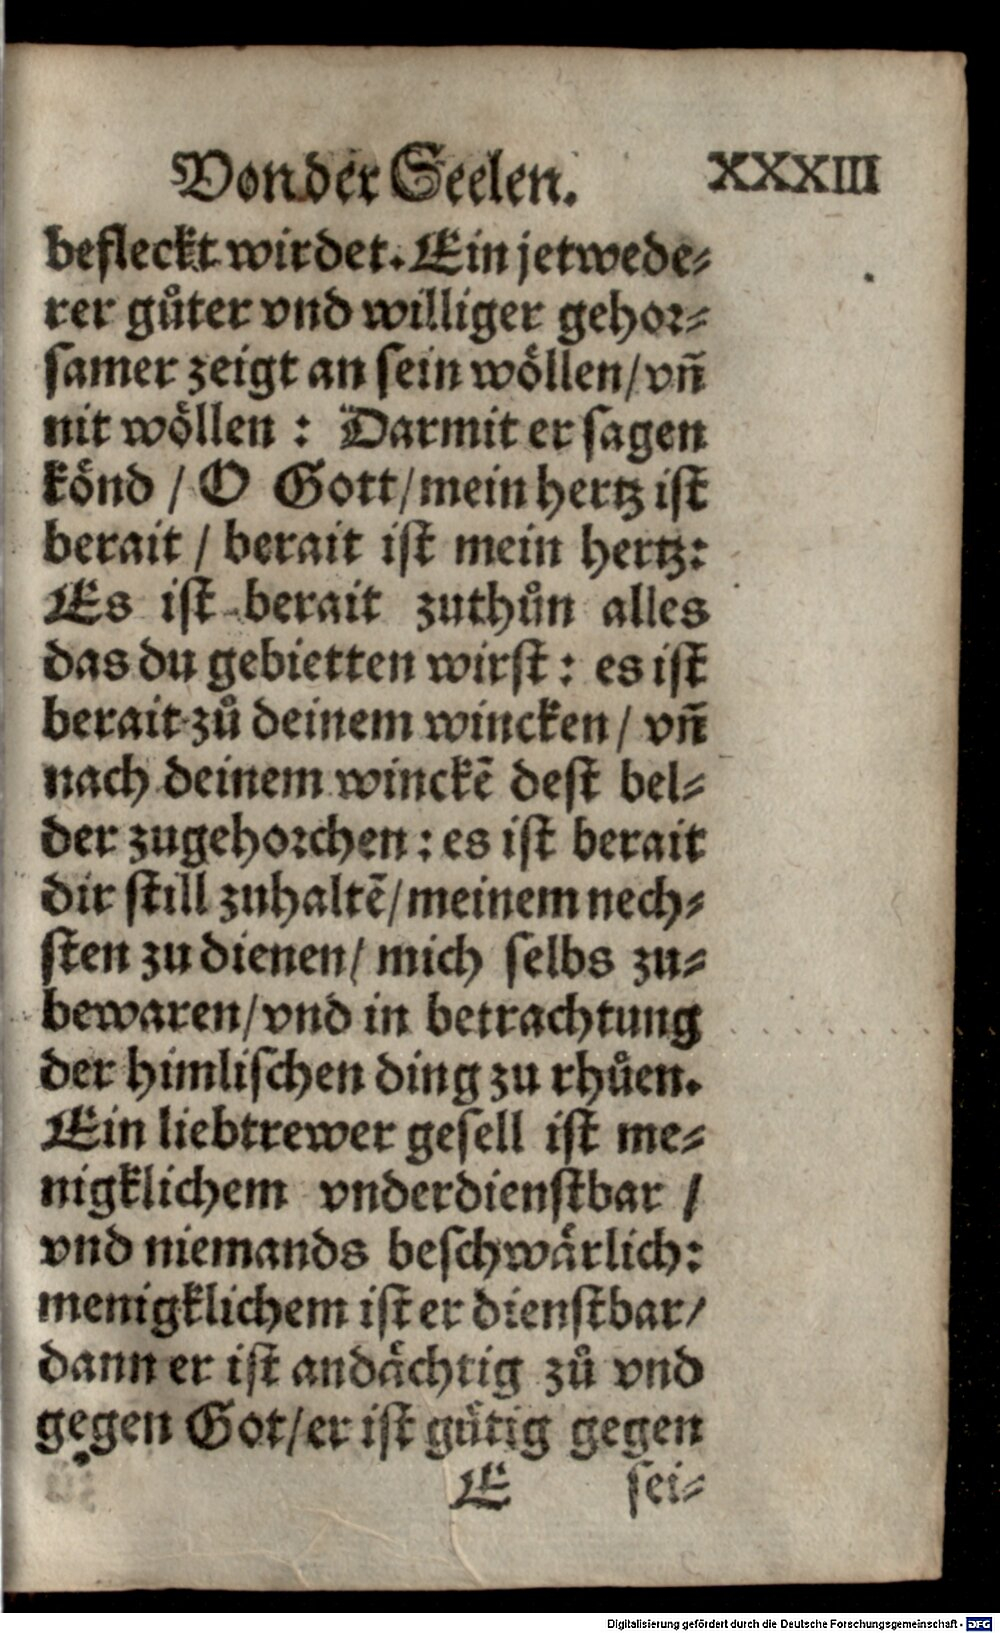 Von der Seelen. XXXIII
befleckt wirdet. Ein jetwede⸗
rer guͦter vnd williger gehor⸗
samer zeigt an sein woͤllen/ vn̄
nit woͤllen : Darmit er sagen
koͤnd / O Gott/ mein hertz ist
berait / berait ist mein hertz:
Es ist berait zuthuͦn alles
das du gebietten wirst : es ist
berait zuͦ deinem wincken/ vn̄
nach deinem winckē dest bel⸗
der zugehorchen : es ist berait
dir still zuhaltē/ meinem nech⸗
sten zu dienen/ mich selbs zu⸗
bewaren/ vnd in betrachtung
der himlischen ding zu rhuͦen.
Ein liebtrewer gesell ist me⸗
nigklichem vnderdienstbar /
vnd niemands beschwaͤrlich:
menigklichem ist er dienstbar/
dann er ist andaͤchtig zuͦ vnd
gegen Got/ er ist guͤtig gegen
E sei⸗
Digitalisierung gefördert durch die Deutsche Forschungsgemeinschaft - DFG